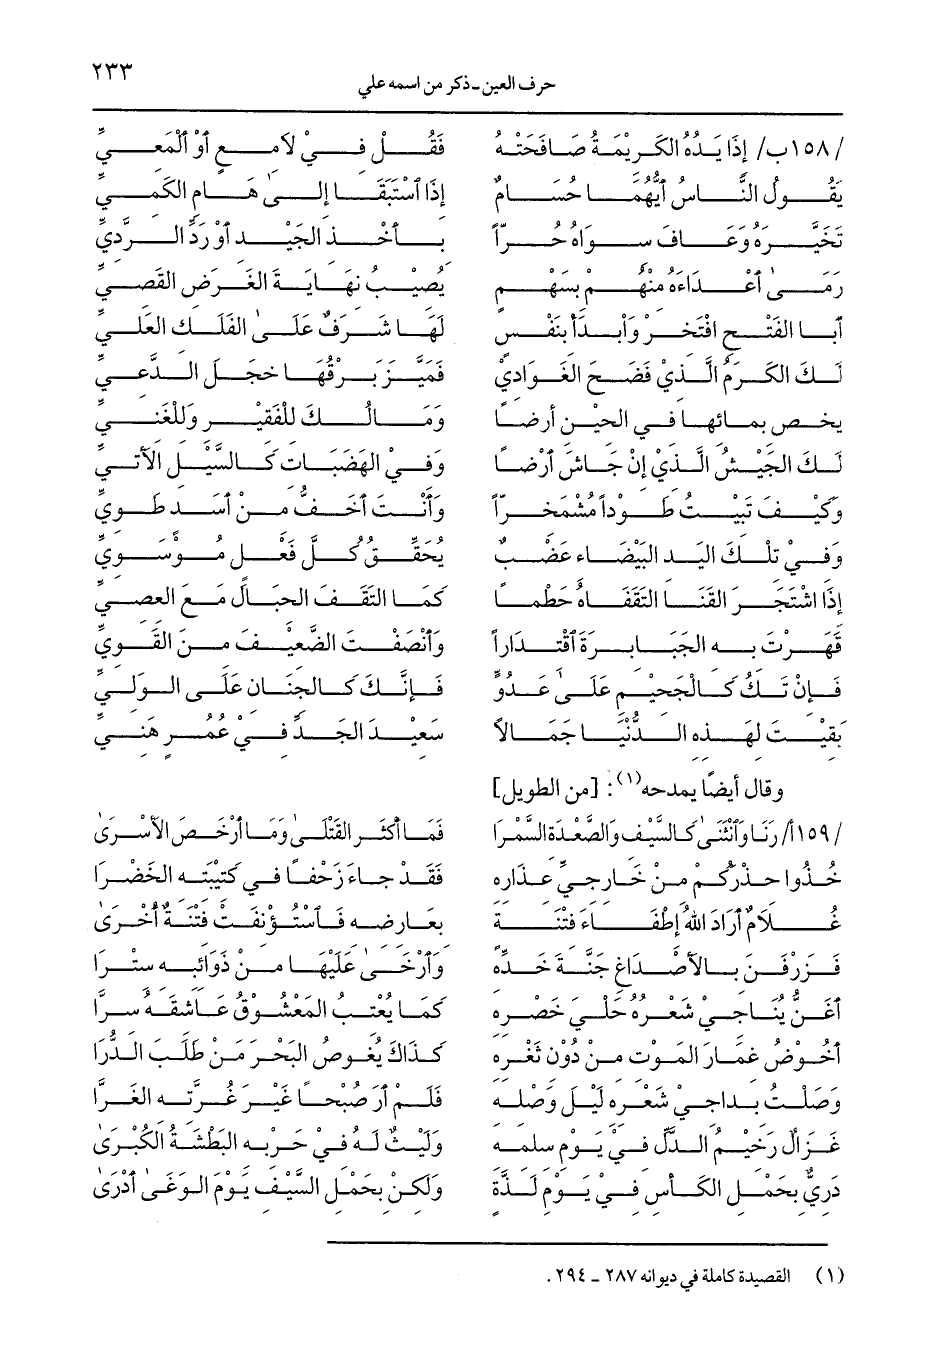 ٢٣٣
حرف العين ـ ذكر من اسمه علي
/١٥٨ب/ إِذَا يَدُهُ الكَرِيْمَةُ صَافَحَتْهُ فَقُلْ فِيْ لَامِعٍ أَوْ أَلْمَعِيِّ
يَقُولُ النَّاسُ أَيُّهُمَا حُسَامٌ إِذَا اسْتَبَقَا إِلَىٰ هَامِ الكَمِيِّ
تَخَيَّرَهُ وَعَافَ سِوَاهُ حُرّاً بِأَخْذِ الجَيِّدِ أَوْ رَدِّ الرَّدِيِّ
رَمَىٰ أَعْدَاءَهُ مِنْهُمْ بِسَهْمٍ يُصِيْبُ نِهَايَةَ الغَرَضِ القَصِيِّ
أَبَا الفَتْحِ افْتَخِرْ وَابْدَأْ بِنَفْسٍ لَهَا شَرَفٌ عَلَىٰ الفَلَكِ العَلِيِّ
لَكَ الكَرَمُ الَّذِيْ فَضَحَ الغَوَادِيْ فَمَيِّزْ بَرْقَهَا خَجَلَ الدَّعِيِّ
يخص بمائها في الحين أرضاً وَمَالُكَ لِلْفَقِيْرِ وَلِلْغَنِيِّ
لَكَ الجَيْشُ الَّذِيْ إِنْ جَاشَ أَرْضاً وَفِيْ الهَضَبَاتِ كَالسَّيْلِ الأَتِيِّ
وَكَيْفَ تَبِيْتُ طَوْداً مُشْمَخِرّاً وَأَنْتَ أَخَفُّ مِنْ أَسَدٍ طَوِيِّ
وَفِيْ تِلْكَ اليَدِ البَيْضَاءِ عَضْبٌ يُحَقِّقُ كُلَّ فِعْلٍ مُوْسَوِيِّ
إِذَا اشْتَجَرَ القَنَا التَقَفَاهُ حَطْماً كَمَا التَقَفَ الحِبَالَ مَعَ العِصِيِّ
قَهَرْتَ بِهِ الجَبَابِرَةَ اقْتِدَاراً وَأَنْصَفْتَ الضَّعِيْفَ مِنَ القَوِيِّ
فَإِنْ تَكُ كَالجَحِيْمِ عَلَىٰ عَدُوٍّ فَإِنَّكَ كَالجِنَانِ عَلَى الوَلِيِّ
بَقِيْتَ لِهَذِهِ الدُّنْيَا جَمَالاً سَعِيْدَ الجَدِّ فِيْ عُمُرٍ هَنِيِّ
وقال أيضاً يمدحه(١): [من الطويل]
/١٥٩أ/ رَنَا وَانْثَنَىٰ كَالسَّيْفِ وَالصَّعْدَةِ السَّمْرَا فَمَا أَكْثَرَ القَتْلَىٰ وَمَا أَرْخَصَ الأَسْرَىٰ
خُذُوا حِذْرَكُمْ مِنْ خَارِجِيِّ عِذَارِهِ فَقَدْ جَاءَ زَحْفاً فِي كَتِيْبَتِهِ الخَضْرَا
غُلَامٌ أَرَادَ اللهُ إِطْفَاءَ فِتْنَةٍ بِعَارِضِهِ فَاسْتُؤْنِفَتْ فِتْنَةٌ أُخْرَىٰ
فَزَرْفَنَ بِالأَصْدَاغِ جَنَّةَ خَدِّهِ وَأَرْخَىٰ عَلَيْهَا مِنْ ذَوَائِبِهِ سِتْرَا
أَغَنُّ يُنَاجِيْ شَعْرُهُ حَلْيَ خَصْرِهِ كَمَا يُعْتِبُ المَعْشُوْقُ عَاشِقَهُ سِرَّا
أَخُوضُ غِمَارَ المَوْتِ مِنْ دُوْنِ ثَغْرِهِ كَذَاكَ يَغُوصُ البَحْرَ مَنْ طَلَبَ الدُّرَّا
وَصَلْتُ بِدَاجِيْ شَعْرِهِ لَيْلَ وَصْلِهِ فَلَمْ أَرَ صُبْحاً غَيْرَ غُرَّتِهِ الغَرَّا
غَزَالٌ رَخِيْمُ الدَّلِّ فِيْ يَوْمِ سِلْمِهِ وَلَيْثٌ لَهُ فِيْ حَرْبِهِ البَطْشَةُ الكُبْرَىٰ
دَرِيٌّ بِحَمْلِ الكَأْسِ فِيْ يَوْمِ لَذَّةٍ وَلَكِنْ بِحَمْلِ السَّيْفِ يَوْمَ الوَغَىٰ أَدْرَىٰ
(١) القصيدة كاملة في ديوانه ٢٨٧ ـ ٢٩٤ .